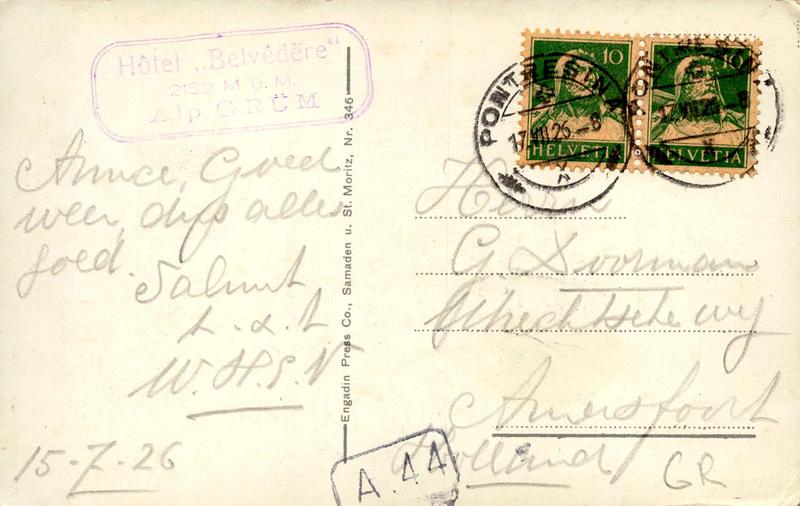 Hôtel „Belvédère"
2189 M ü. M.
Alp GRÜM
Amice, Goed
weer, dus alles
goed.
Saluut
W.H.S.V
15-7-26
Engadin Press Co., Samaden u. St. Moritz, Nr. 346
10 10
HELVETIA HELVETIA
PONTRESINA
17.VII.26-8
Herrn
G. Doorman
Utrechtsche weg
Amersfoort
Holland
A.44
GR